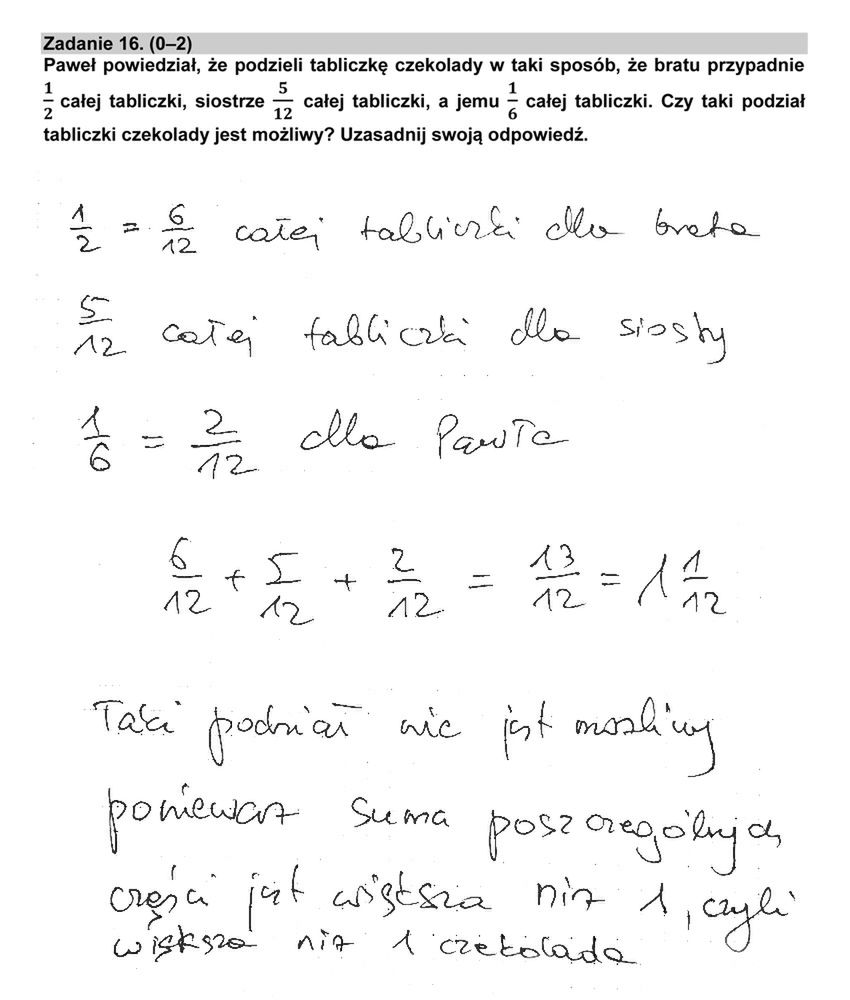 Zadanie 16. (0–2)
Paweł powiedział, że podzieli tabliczkę czekolady w taki sposób, że bratu przypadnie
1/2 całej tabliczki, siostrze 5/12 całej tabliczki, a jemu 1/6 całej tabliczki. Czy taki podział
tabliczki czekolady jest możliwy? Uzasadnij swoją odpowiedź.
1/2 = 6/12 całej tabliczki dla brata
5/12 całej tabliczki dla siosty
1/6 = 2/12 dla Pawła
6/12 + 5/12 + 2/12 = 13/12 = 1 1/12
Taki podział nie jest mozliwy
poniewarz suma poszczególnych
części jest większa niz 1, czyli
większa niz 1 czekolada